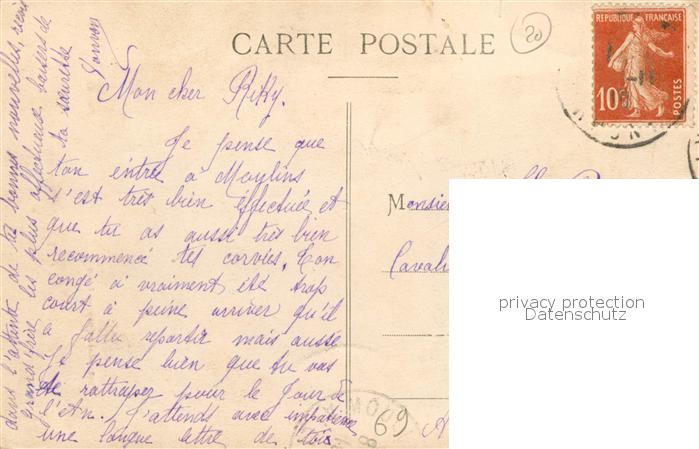 CARTE POSTALE
20
REPUBLIQUE FRANÇAISE
10c
POSTES
Mon cher Rikky.
Je pense que
ton entrée à Moulins
s'est très bien effectuée et
que tu as aussi très bien
recommencé tes corvées. Ton
congé à vraiment été trop
court à peine arriver qu'il
a fallu repartir mais aussi
Je pense bien que tu vas
te rattraper pour le Jour de
l'An. J'attends avec impatience
une longue lettre de toi
dans l'attente de tes bonnes nouvelles,
grand frère les plus affectueux baisers de
ta sœurette
Monsieur
Cavali
privacy protection
Datenschutz
69